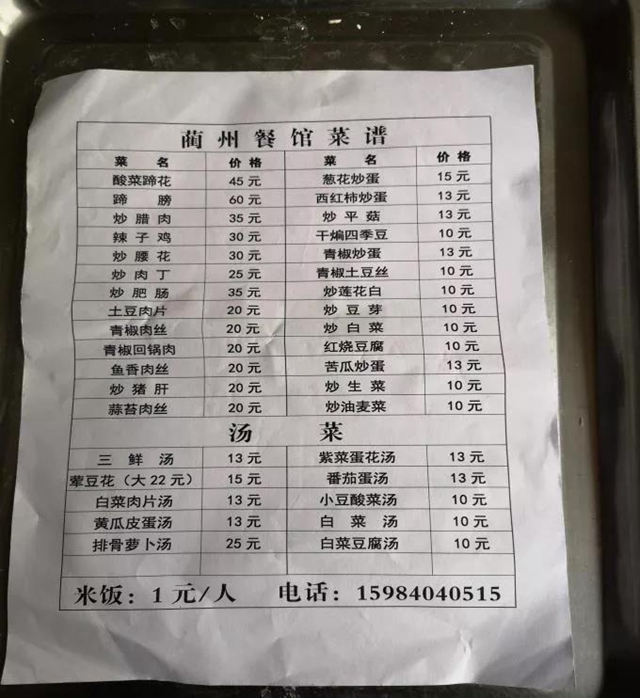 蔺州餐馆菜谱
菜名 价格 菜名 价格
酸菜蹄花 45元 葱花炒蛋 15元
蹄膀 60元 西红柿炒蛋 13元
炒腊肉 35元 炒平菇 13元
辣子鸡 30元 干煸四季豆 10元
炒腰花 30元 青椒炒蛋 13元
炒肉丁 25元 青椒土豆丝 10元
炒肥肠 35元 炒莲花白 10元
土豆肉片 20元 炒豆芽 10元
青椒肉丝 20元 炒白菜 10元
青椒回锅肉 20元 红烧豆腐 10元
鱼香肉丝 20元 苦瓜炒蛋 13元
炒猪肝 20元 炒生菜 10元
蒜苔肉丝 20元 炒油麦菜 10元
汤菜
三鲜汤 13元 紫菜蛋花汤 13元
荤豆花（大22元） 15元 番茄蛋汤 13元
白菜肉片汤 13元 小豆酸菜汤 10元
黄瓜皮蛋汤 13元 白菜汤 10元
排骨萝卜汤 25元 白菜豆腐汤 10元
米饭：1元/人 电话：15984040515